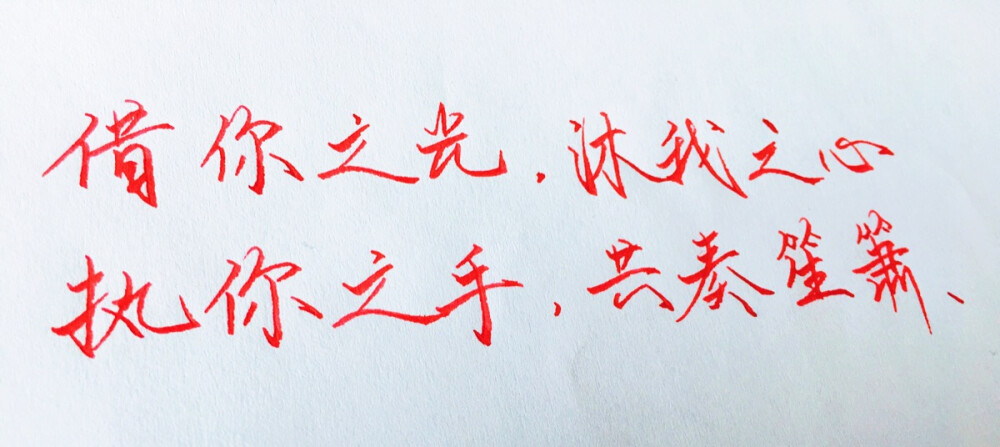 借你之光,沐我之心
执你之手,共奏笙箫、